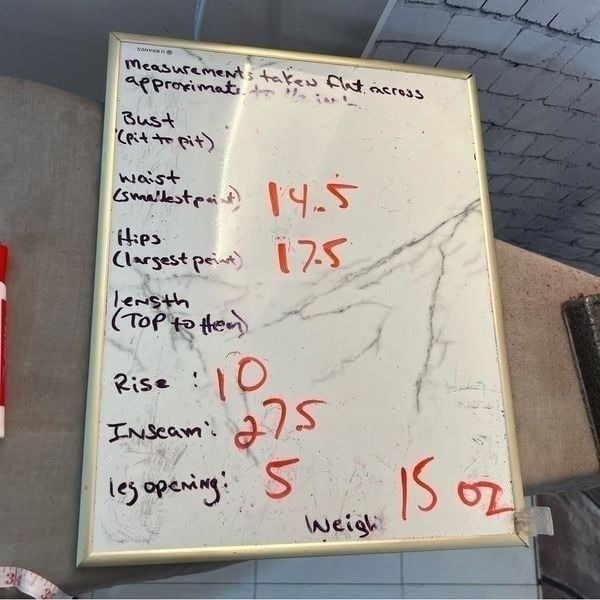 U BRANDS
measurements taken flat across
approximate to 1/2 inch
Bust
(pit to pit)
waist
(smallest point) 14.5
Hips
(largest point) 17.5
length
(TOP to Hem)
Rise : 10
Inseam: 27.5
leg opening: 5
15 oz
Weigh